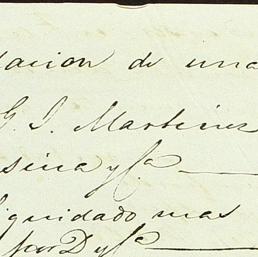 dacion de una
G. I. Martinez
sina y Cª
iquidado mas
por D y Cª